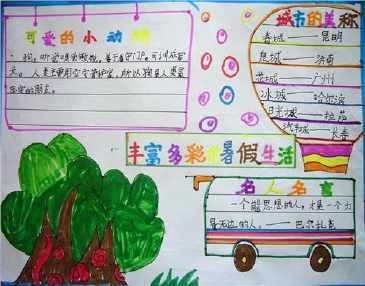 可爱的小动物
狗,听觉嗅觉敏锐,善于看守门户,可训练军
犬。人类主要用它守着护家,所以狗是人类最
忠实的朋友。
城市的美称
春城——昆明
泉城——济南
花城——广州
冰城——哈尔滨
日光城——拉萨
汽车城——长春
丰富多彩的暑假生活
名人名言
一个能思想的人,才是一个力
量无边的人。——巴尔扎克